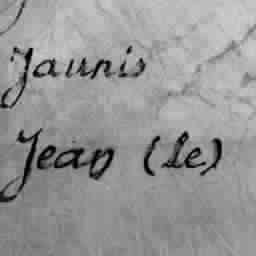 Jaunis
Jean (Le)